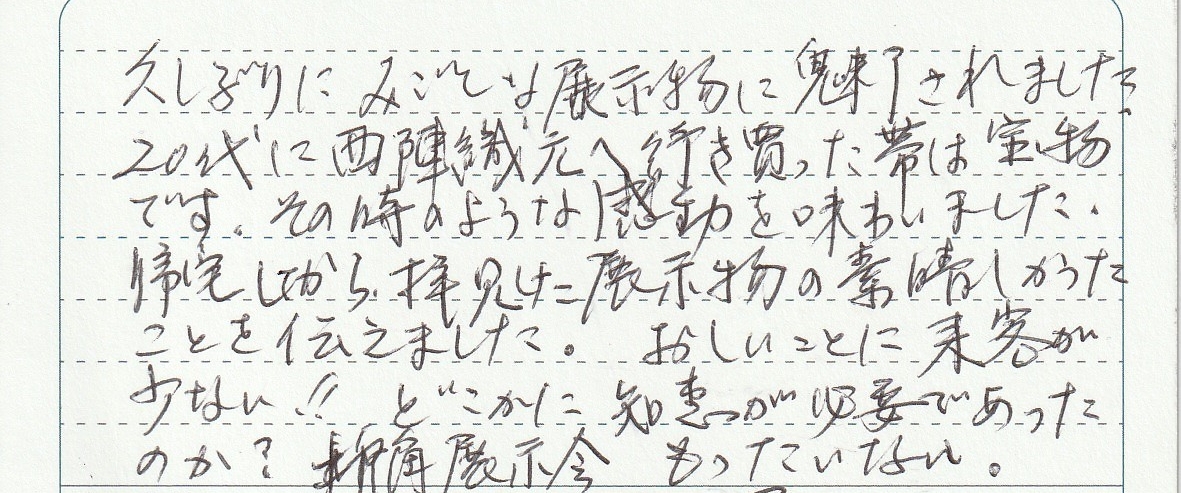 久しぶりにみごとな展示物に魅了されました。
20代に西陣織元へ行き買った帯は宝物
です。その時のような感動を味わいました。
帰宅してから、拝見した展示物の素晴しかった
ことを伝えました。 おしいことに来客が
少ない!! どこかに知恵が必要であった
のか? 折角展示会 もったいない。